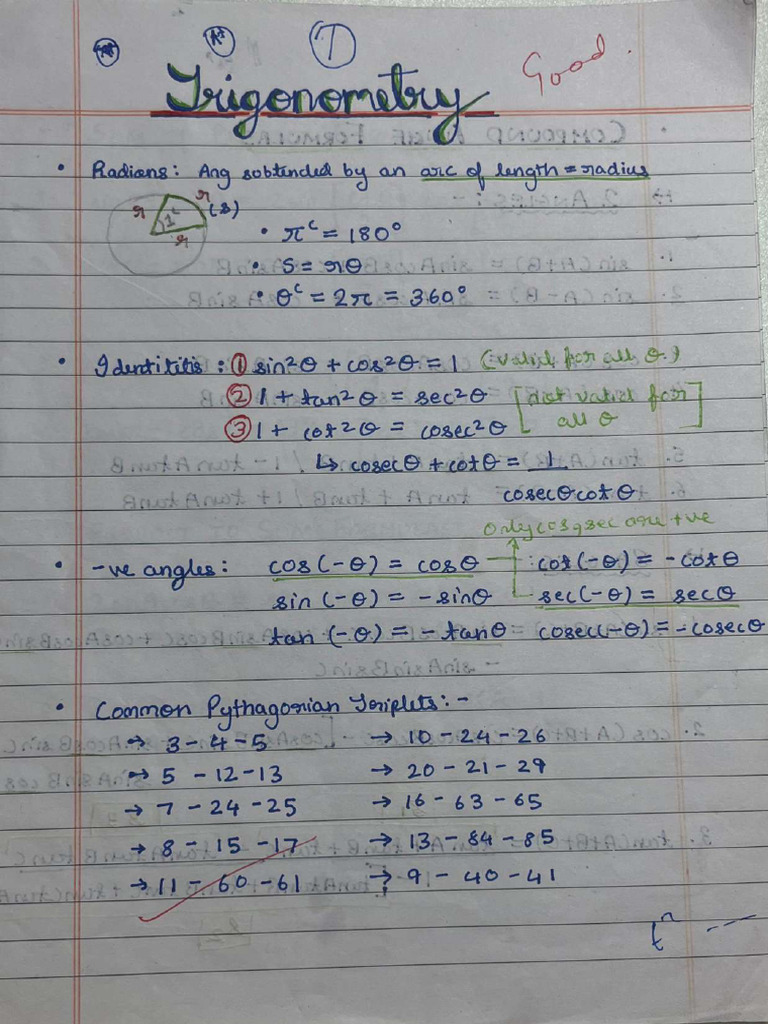 A+
1
Good.
Trigonometry
• Radians: Ang subtended by an arc of length = radius
r r (s)
1ᶜ
r
• πᶜ = 180°
• S = rθ
• θᶜ = 2π = 360°
• Identititis: ① sin²θ + cos²θ = 1 (valid for all θ)
② 1 + tan²θ = sec²θ [Not valid for
③ 1 + cot²θ = cosec²θ all θ]
↳ cosecθ + cotθ = 1
cosecθcotθ
only cos, sec are +ve
• -ve angles: cos(-θ) = cosθ cot(-θ) = -cotθ
sin(-θ) = -sinθ sec(-θ) = secθ
tan(-θ) = -tanθ cosec(-θ) = -cosecθ
• Common Pythagorian Triplets:-
→ 3-4-5 → 10-24-26
→ 5-12-13 → 20-21-29
→ 7-24-25 → 16-63-65
→ 8-15-17 → 13-84-85
→ 11-60-61 → 9-40-41